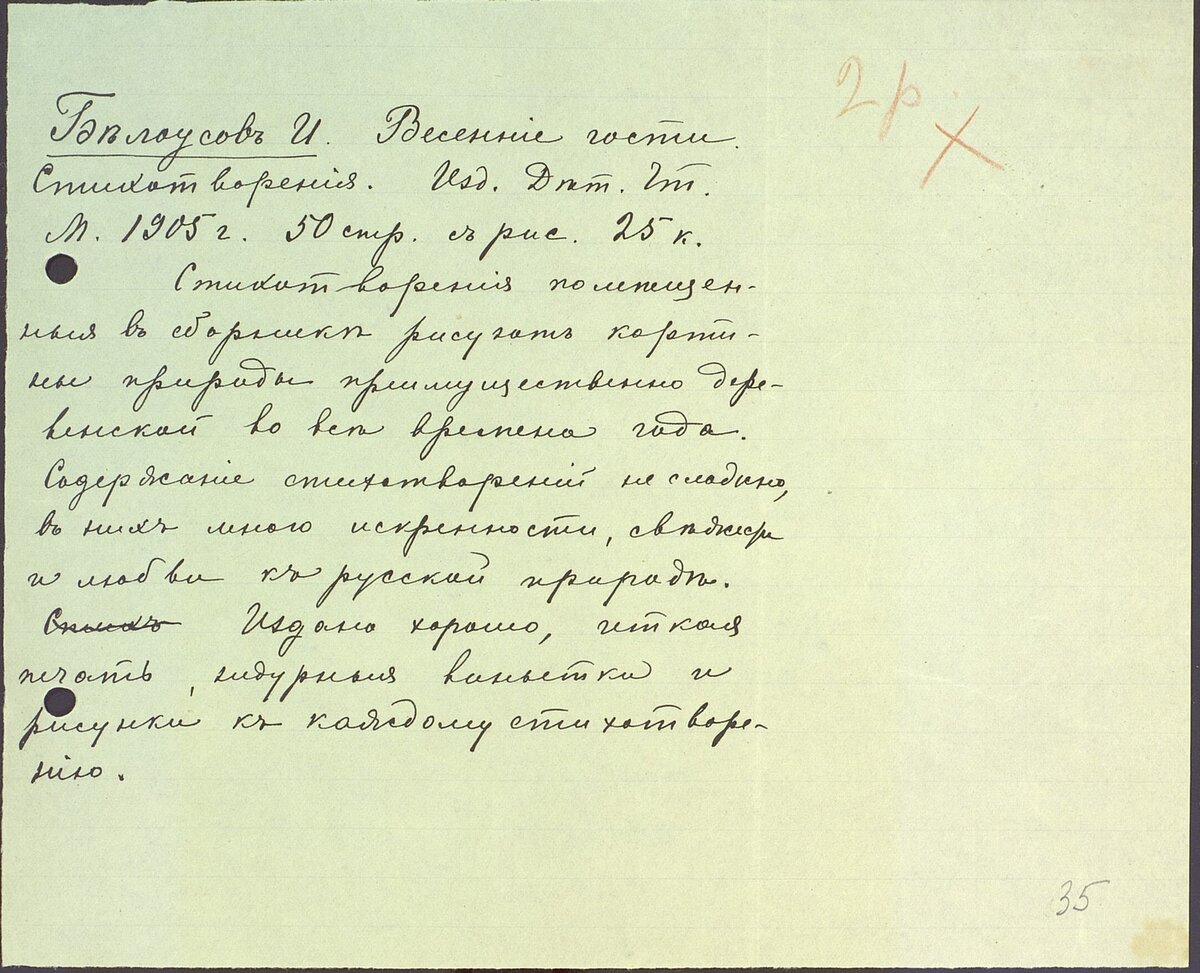 2 р.
Бѣлоусовъ И. Весенніе гости.
Стихотворенія. Изд. Дѣт. Чт.
М. 1905 г. 50 стр. съ рис. 25 к.
Стихотворенія помѣщен-
ныя въ сборникѣ рисуютъ карти-
ны природы преимущественно дере-
венской во всѣ времена года.
Содержаніе стихотвореній не сложно,
въ нихъ много искренности, свѣжести
и любви къ русской природѣ.
Издано хорошо, четкая
печать, недурныя виньетки и
рисунки къ каждому стихотворе-
нію.
35